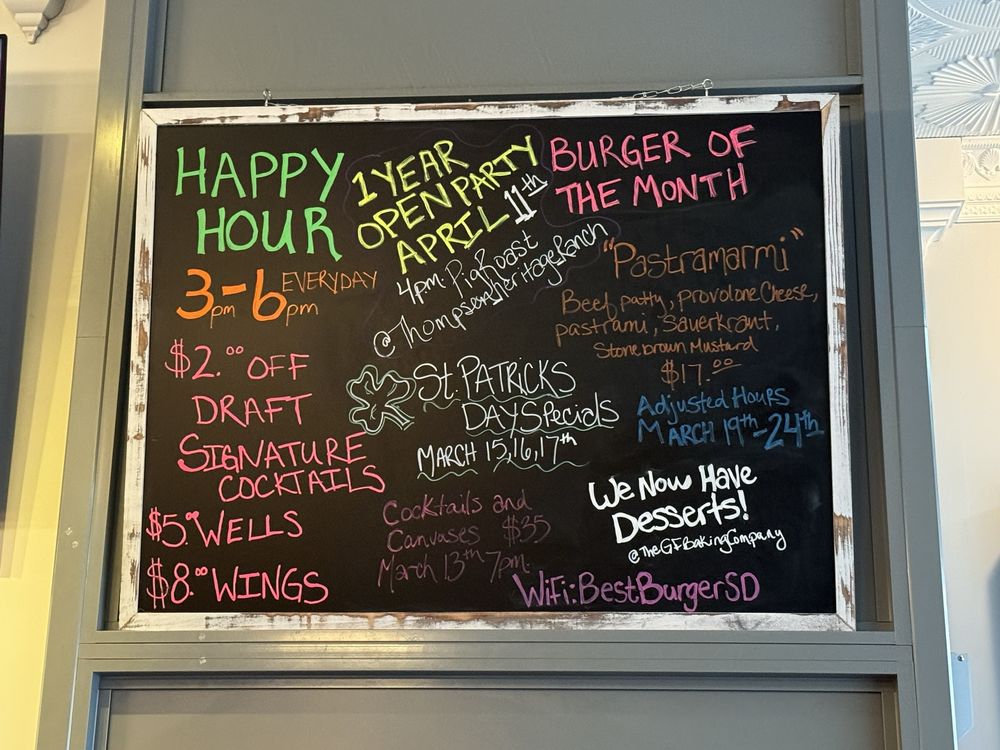 HAPPY
HOUR
3pm-6pm EVERYDAY
$2.00 OFF
DRAFT
SIGNATURE
COCKTAILS
$5.00 WELLS
$8.00 WINGS
1 YEAR
OPEN PARTY
APRIL 11th
4pm. Pig Roast
@ThompsonsHeritageRanch
St. PATRICKS
DAY Specials
MARCH 15,16,17th
Cocktails and
Canvases $35
March 13th 7pm.
BURGER OF
THE MONTH
"Pastramarmi"
Beef patty, Provolone Cheese,
pastrami, Sauerkraut,
Stone brown Mustard
$17.00
Adjusted Hours
MARCH 19th-24th
We Now Have
Desserts!
@TheGFBakingCompany
WiFi:BestBurgerSD